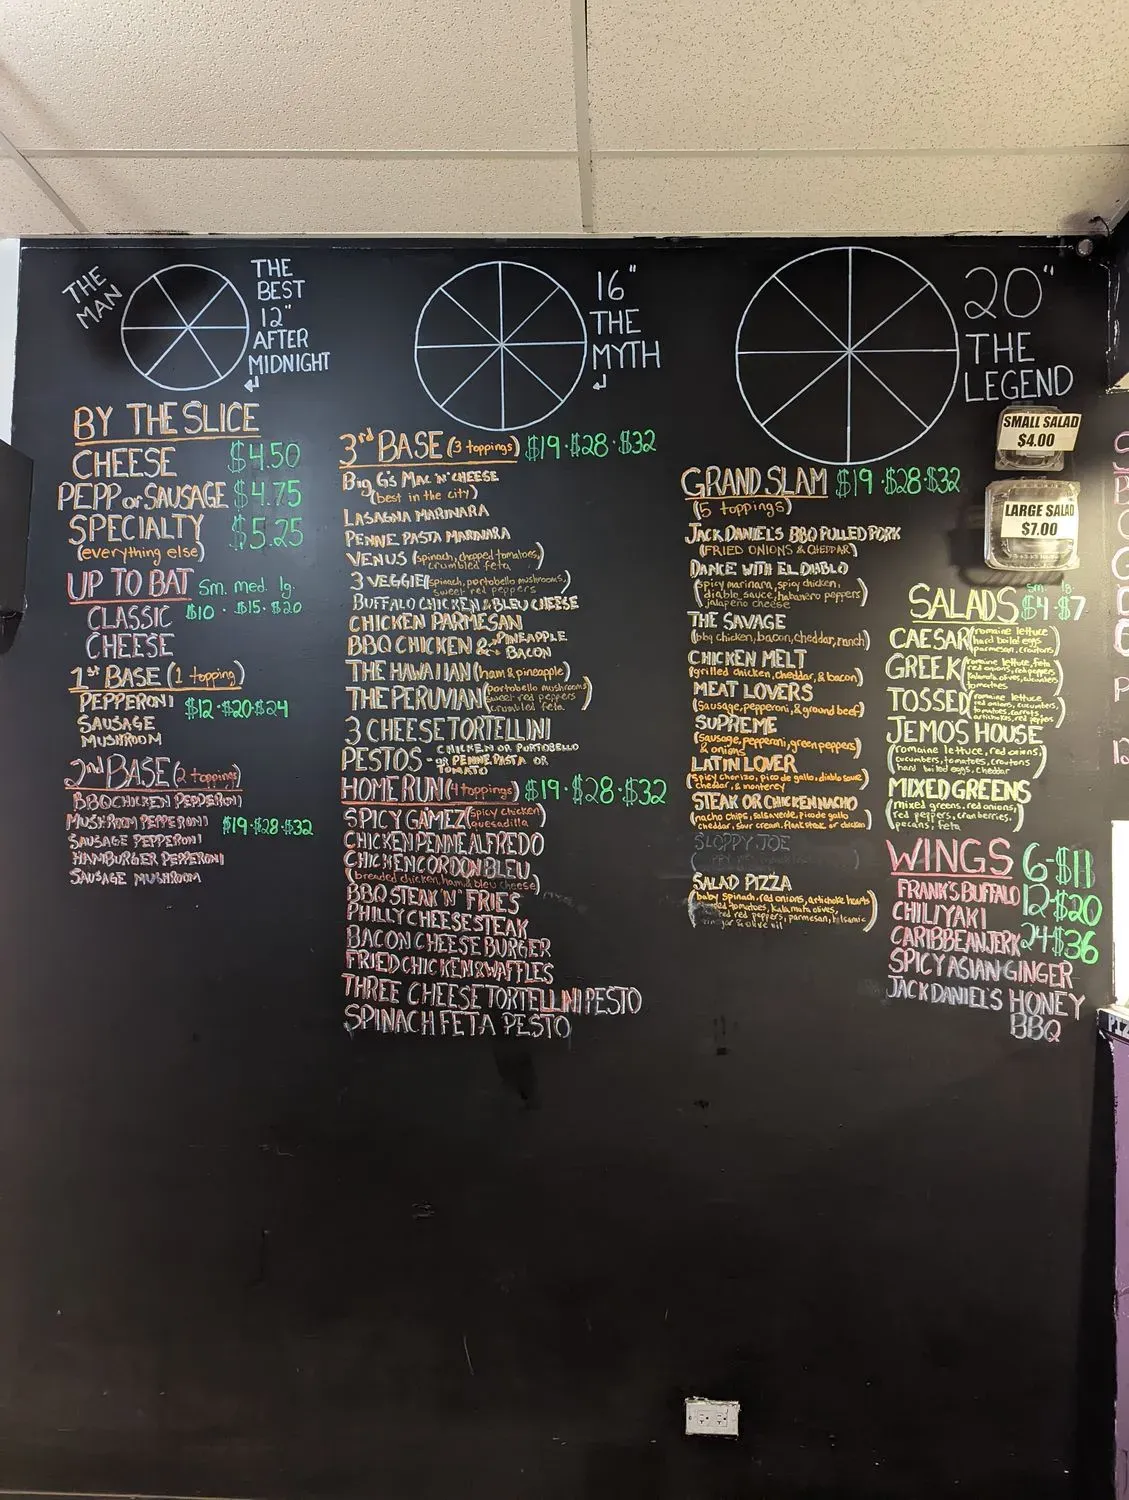 THE
MAN
THE
BEST
12"
AFTER
MIDNIGHT
16"
THE
MYTH
20"
THE
LEGEND
BY THE SLICE
CHEESE $4.50
PEPP or SAUSAGE $4.75
SPECIALTY $5.25
(everything else)
UP TO BAT Sm. med. lg.
CLASSIC $10 · $15 · $20
CHEESE
1st BASE (1 topping)
PEPPERONI $12 · $20 · $24
SAUSAGE
MUSHROOM
2nd BASE (2 toppings)
BBQ CHICKEN PEPPERONI
MUSHROOM PEPPERONI $19 · $28 · $32
SAUSAGE PEPPERONI
HAMBURGER PEPPERONI
SAUSAGE MUSHROOM
3rd BASE (3 toppings) $19 · $28 · $32
BIG G'S MAC 'N' CHEESE
(best in the city)
LASAGNA MARINARA
PENNE PASTA MARINARA
VENUS (spinach, chopped tomatoes,
crumbled feta)
3 VEGGIE (spinach, portobello mushrooms,
sweet red peppers)
BUFFALO CHICKEN & BLEU CHEESE
CHICKEN PARMESAN
BBQ CHICKEN & PINEAPPLE
BACON
THE HAWAIIAN (ham & pineapple)
THE PERUVIAN (portobello mushrooms
sweet red peppers
crumbled feta)
3 CHEESE TORTELLINI
PESTOS - CHICKEN OR PORTOBELLO
OR PENNE PASTA OR
TOMATO
HOME RUN (4 toppings) $19 · $28 · $32
SPICY GAMEZ (spicy chicken
quesadilla)
CHICKEN PENNE ALFREDO
CHICKEN CORDON BLEU
(breaded chicken, ham & bleu cheese)
BBQ STEAK 'N' FRIES
PHILLY CHEESE STEAK
BACON CHEESE BURGER
FRIED CHICKEN & WAFFLES
THREE CHEESE TORTELLINI PESTO
SPINACH FETA PESTO
GRAND SLAM $19 · $28 · $32
(5 toppings)
JACK DANIEL'S BBQ PULLED PORK
(FRIED ONIONS & CHEDDAR)
DANCE WITH EL DIABLO
(spicy marinara, spicy chicken,
diablo sauce, habanero peppers
jalapeno cheese)
THE SAVAGE
(bbq chicken, bacon, cheddar, ranch)
CHICKEN MELT
(grilled chicken, cheddar, & bacon)
MEAT LOVERS
(sausage, pepperoni, & ground beef)
SUPREME
(sausage, pepperoni, green peppers
& onions)
LATIN LOVER
(spicy chorizo, pico de gallo, diablo sauce
cheddar, & monterey)
STEAK OR CHICKEN NACHO
(nacho chips, salsa verde, pico de gallo
cheddar, sour cream, flank steak or chicken)
SLOPPY JOE
SALAD PIZZA
(baby spinach, red onions, artichoke hearts
tomatoes, kalamata olives,
red peppers, parmesan, balsamic
& olive oil)
SMALL SALAD
$4.00
LARGE SALAD
$7.00
sm. lg.
SALADS $4 · $7
CAESAR (romaine lettuce
hard boiled eggs
parmesan, croutons)
GREEK (romaine lettuce, feta
red onions, red peppers
kalamata olives, cucumbers
tomatoes)
TOSSED (romaine lettuce
red onions, cucumbers,
tomatoes, carrots
artichokes, red peppers)
JEMO'S HOUSE
(romaine lettuce, red onions,
cucumbers, tomatoes, croutons
hard boiled eggs, cheddar)
MIXED GREENS
(mixed greens, red onions,
red peppers, cranberries,
pecans, feta)
WINGS 6-$11
FRANK'S BUFFALO 12-$20
CHILIYAKI
CARIBBEAN JERK 24-$36
SPICY ASIAN GINGER
JACK DANIEL'S HONEY
BBQ